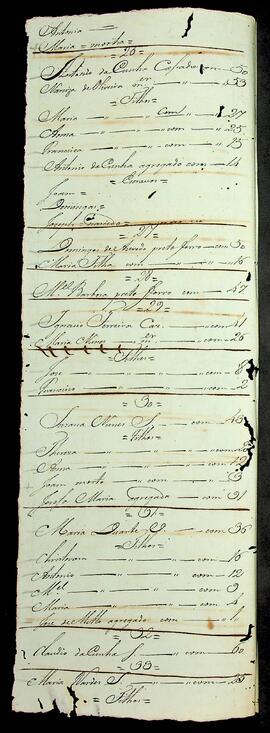 Antonia =
Maria = morta =
= 26 =
Antonio da Cunha Casado com — 50
de Oliveira m.er — 53
= Filhos =
Maria — " — com — 27
Anna — " — " — com — 25
Francisca — " — " — com — 15
Antonio da Cunha agregado com — 14
= Escravos =
Joam =
Domingas =
Joseph
= 27 =
Domingos de preto forro — com 50
Maria Filha com — " — 16
= 28 =
M.el Barboza preto forro — com — 47
= 29 =
Ignacio Ferreira Caz. — " — com — 41
Maria Nunes m.er — " — com — 26
= Filhos =
Joze — " — " — com — 8
Francisco — " — " — com — 2
= 30 =
Suzana Nunes S. — com — 43
= Filhos =
Thereza — " — " — com
Anna — " — " — com — 12
Joam morto — " — com
Maria agregada — com — 91
= 31 =
Maria Duarte S. — com — 36
= Filhos =
Christovam — " — " — com — 16
Antonio — " — " — com — 12
M.el — " — " — com — 9
Maria — " — " — com — 4
Joze de Mello agregado com
= 32 =
Claudio da Cunha S. — " — com — 60
= 33 =
Maria S. — " — com — 25
= Filhos =